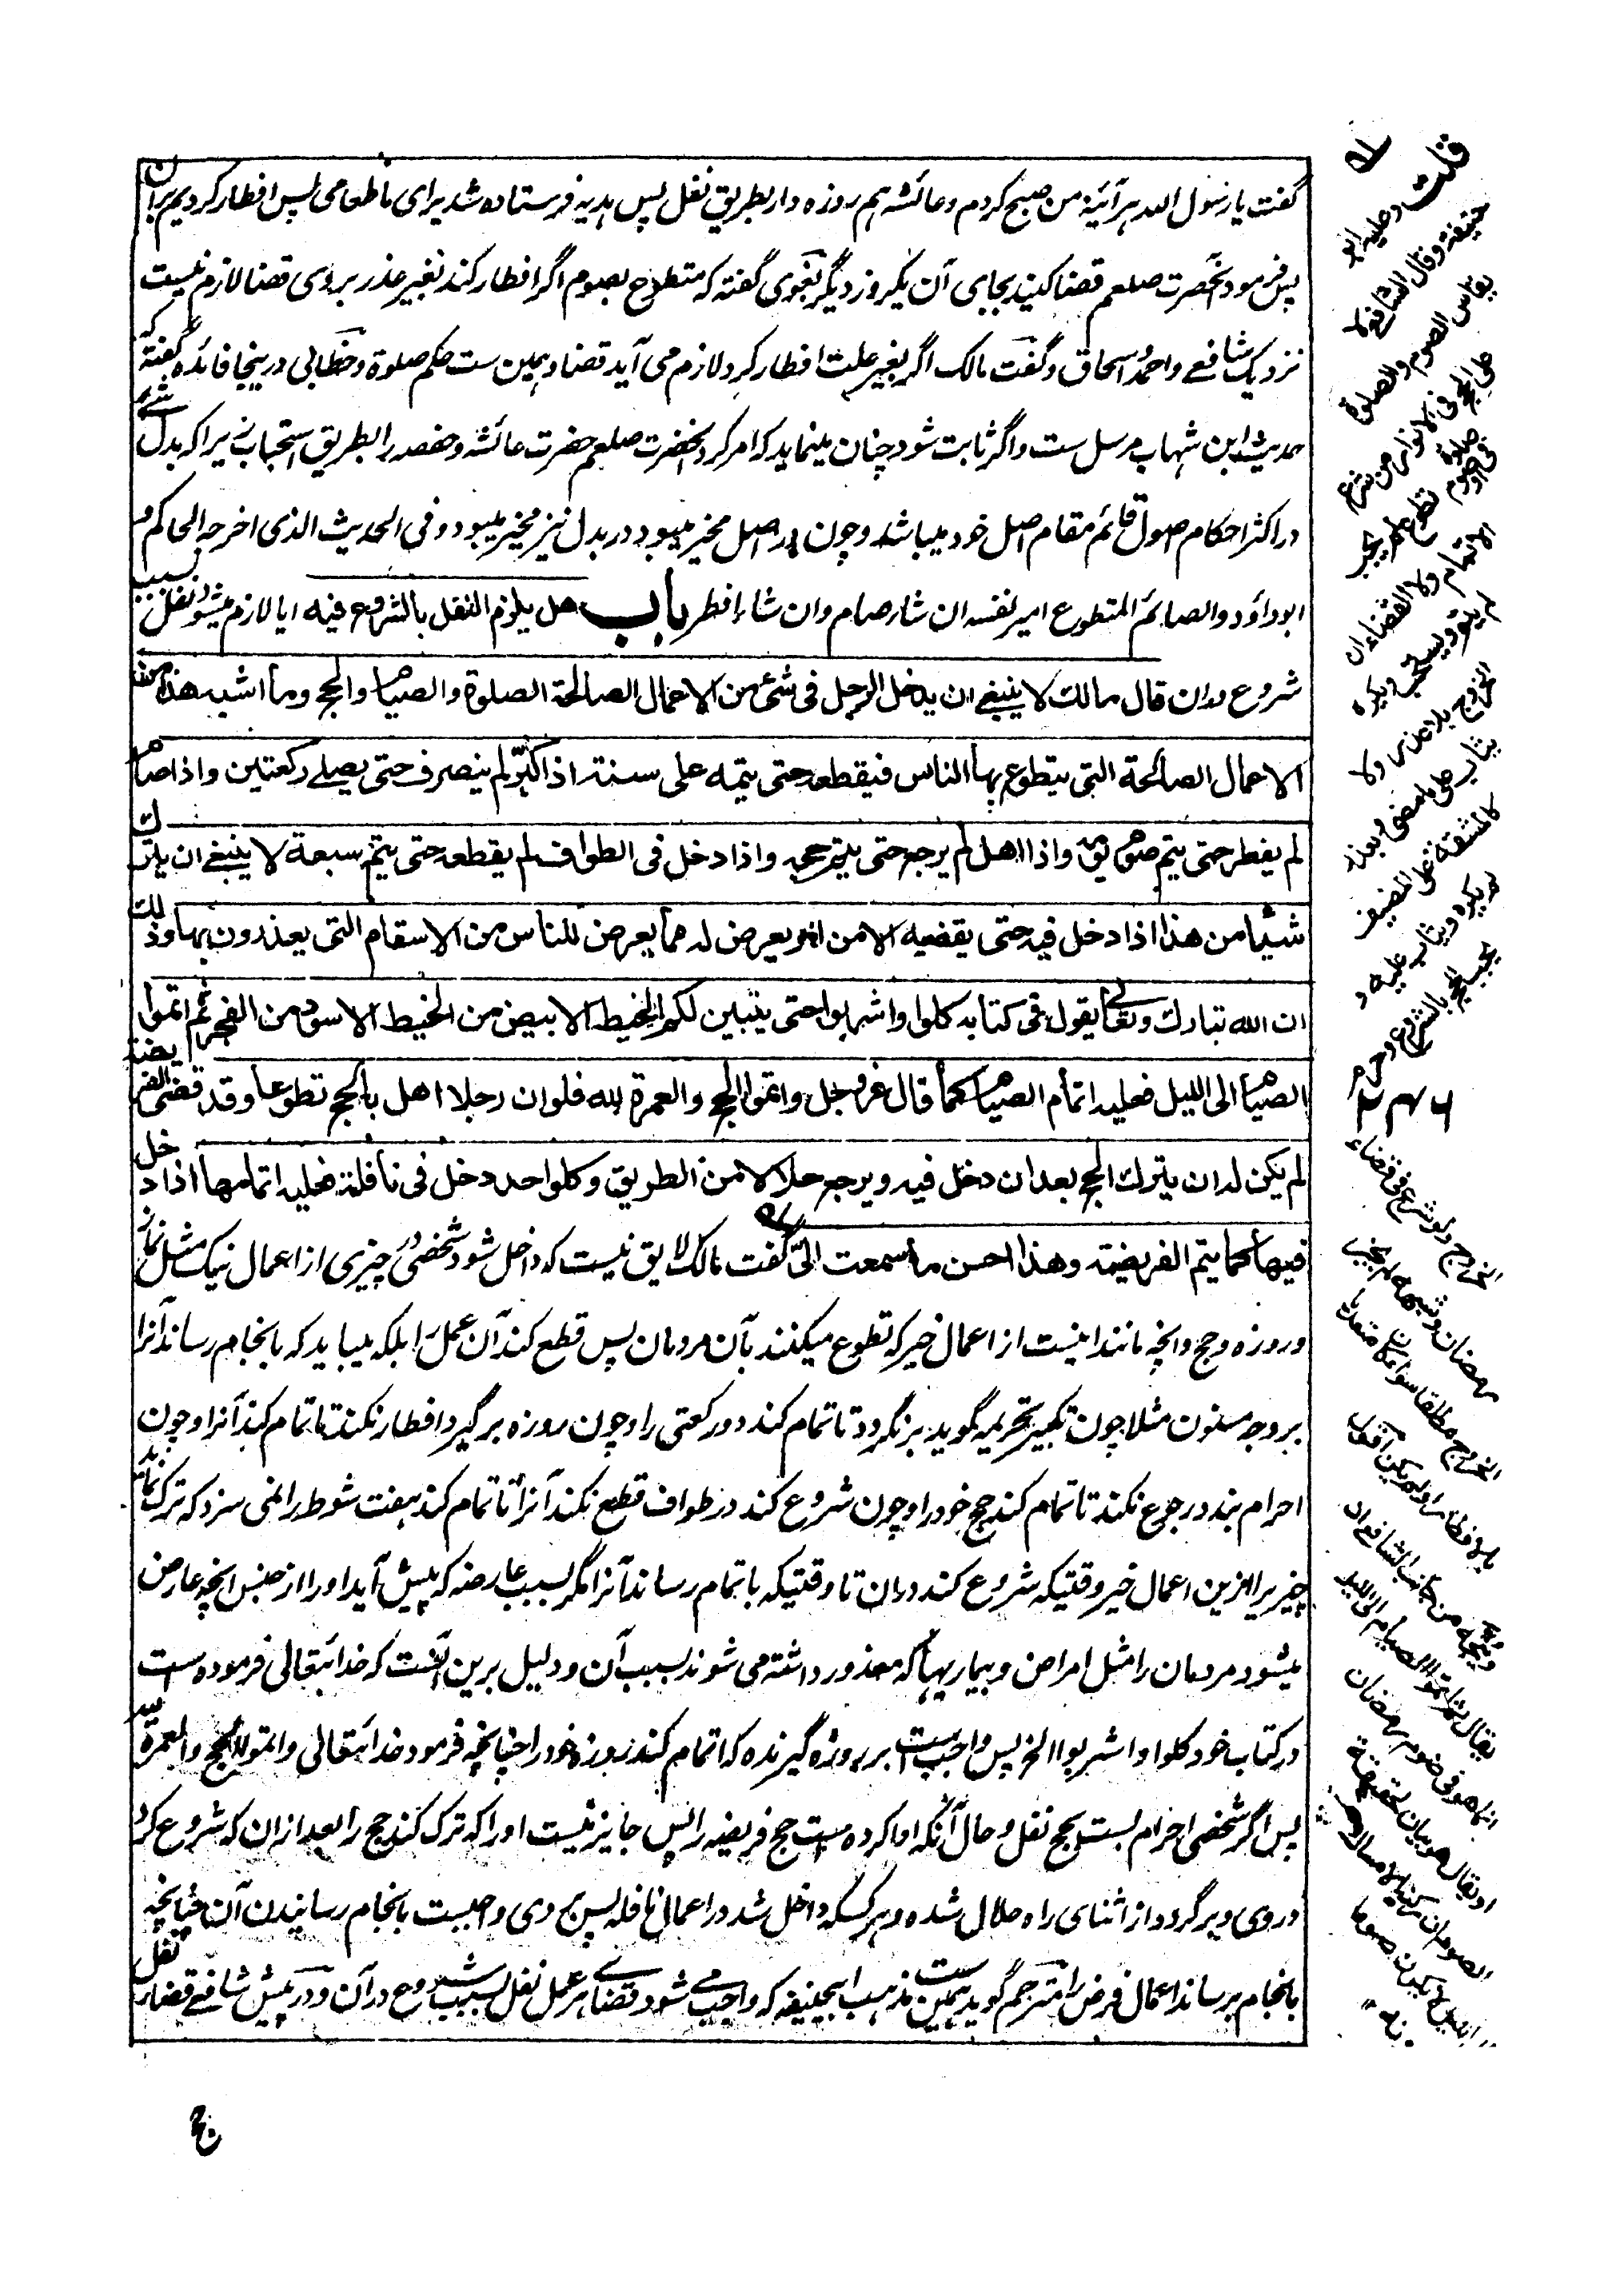 گفت یا رسول الله هر آئینه من صبح کردم و عائشه هم روزه دار بطریق نفل پس هدیه فرستاده شد برای ما طعامی پس افطار کردیم بران
پس فرمود آنحضرت صلعم قضا کنید بجای آن یکروز دیگر بغوی گفته که متطوع بصوم اگر افطار کند بغیر عذر بر وی قضا لازم نیست
نزدیک شافعے و احمد و اسحاق و گفت مالک اگر بغیر علت افطار کرد لازم می آید قضا و همین ست حکم صلوة و خطابی درینجا فائده گفته که
حدیث ابن شهاب مرسل ست و اگر ثابت شود چنان مینماید که امر کرد آنحضرت صلعم حضرت عائشه و حفصه را بطریق استحباب زیرا که بدل شئے
در اکثر احکام اصول قائم مقام اصل خود میباشد و چون در اصل مخیر میبود در بدل نیز مخیر میبود و فی الحدیث الذی اخرجه الحاکم و
ابو داؤد و الصائم المتطوع امیر نفسه ان شاء صام و ان شاء افطر باب هل یلزم النفل بالشروع فیه ایا لازم میشود نفل بسبب
شروع دران قال مالك لا ينبغي ان يدخل الرجل فى شئ من الاعمال الصالحة الصلوة والصيام والحج وما اشبه هذا من
الاعمال الصالحة التى يتطوع بها الناس فيقطعه حتى يتمه على سنته اذا كبّر لم ينصرف حتى يصلے ركعتين واذا صام
لم يفطر حتى يتم صوم يومه واذا اهل لم يرجع حتى يتم حجه واذا دخل فى الطواف لم يقطعه حتى يتم سبعه لا ينبغي ان يترك
شيئا من هذا اذا دخل فيه حتى يقضيه الا من امر يعرض له مما يعرض للناس من الاسقام التى يعذرون بها وذلك
ان الله تبارك وتعالے يقول فى كتابه كلوا واشربوا حتى يتبين لكم الخيط الابيض من الخيط الاسود من الفجر ثم اتموا
الصيام الى الليل فعليه اتمام الصيام كما قال عز وجل واتموا الحج والعمرة لله فلو ان رجلا اهل بالحج تطوعا وقد قضى الفريضة
لم يكن له ان يترك الحج بعد ان دخل فيه ويرجع حلالا من الطريق وكل احد دخل فى نافلة فعليه اتمامها اذا دخل
فيها كما يتم الفريضة وهذا احسن ما سمعت الىّ گفت مالک لایق نیست که داخل شود شخصی در چیزی از اعمال نیک مثل نماز
و روزه و حج و آنچه مانند اینست از اعمال خیر که تطوع میکنند بآن مردمان پس قطع کند آن عمل را بلکه میباید که بانجام رساند آنرا
بر وجه مسنون مثلا چون تکبیر تحریمه گوید برنگردد تا تمام کند دو رکعتی را و چون روزه برگیرد افطار نکند تا تمام کند آنرا و چون
احرام بندد رجوع نکند تا تمام کند حج خود را و چون شروع کند در طواف قطع نکند آنرا تا تمام کند هفت شوط را نمی سزد که ترک نماید
چیزیرا ازین اعمال خیر وقتیکه شروع کند دران تا وقتیکه باتمام رساند آنرا مگر بسبب عارضه که پیش آید او را از جنس آنچه عارض
میشود مردمان را مثل امراض و بیماریها که معذور داشته می شوند بسبب آن و دلیل برین آنست که خدایتعالی فرموده است
در کتاب خود کلوا و اشربوا الخ پس واجب ست بر روزه گیرنده که اتمام کند روزه خود را چنانچه فرمود خدایتعالی و اتموا الحج و العمرة لله
پس اگر شخصی احرام بست بحج نفل و حال آنکه ادا کرده است حج فریضه را پس جایز نیست او را که ترک کند حج را بعد از ان که شروع کرد
در وی و برگردد از اثنای راه حلال شده و هر کسکه داخل شد در اعمال نافله پس بر وی واجبست بانجام رسانیدن آن چنانچه
بانجام برساند اعمال فرض را مترجم گوید همین ست مذهب ابیحنیفه که واجب مے شود قضاے هر عمل نفل بسبب شروع در آن و در پیش شافعے قضاء نفل
قلت وعليه ابو
حنيفة وقال الشافعے لا
يقاس الصوم والصلوة
على الحج فى الانوار من شرع
فى صلوة او صوم تطوع لم يجب
الاتمام ولا القضاء ان
لم يتم ويستحب ويكره
الخروج بلا عذر ولا
يثاب على ما مضى وبعذر
كالمشقة على المضيف
لم يكره ويثاب عليه و
يجب الحج بالشروع وحرم
الخروج ولو شرع فى قضاء
رمضان وشبهه لم يجب